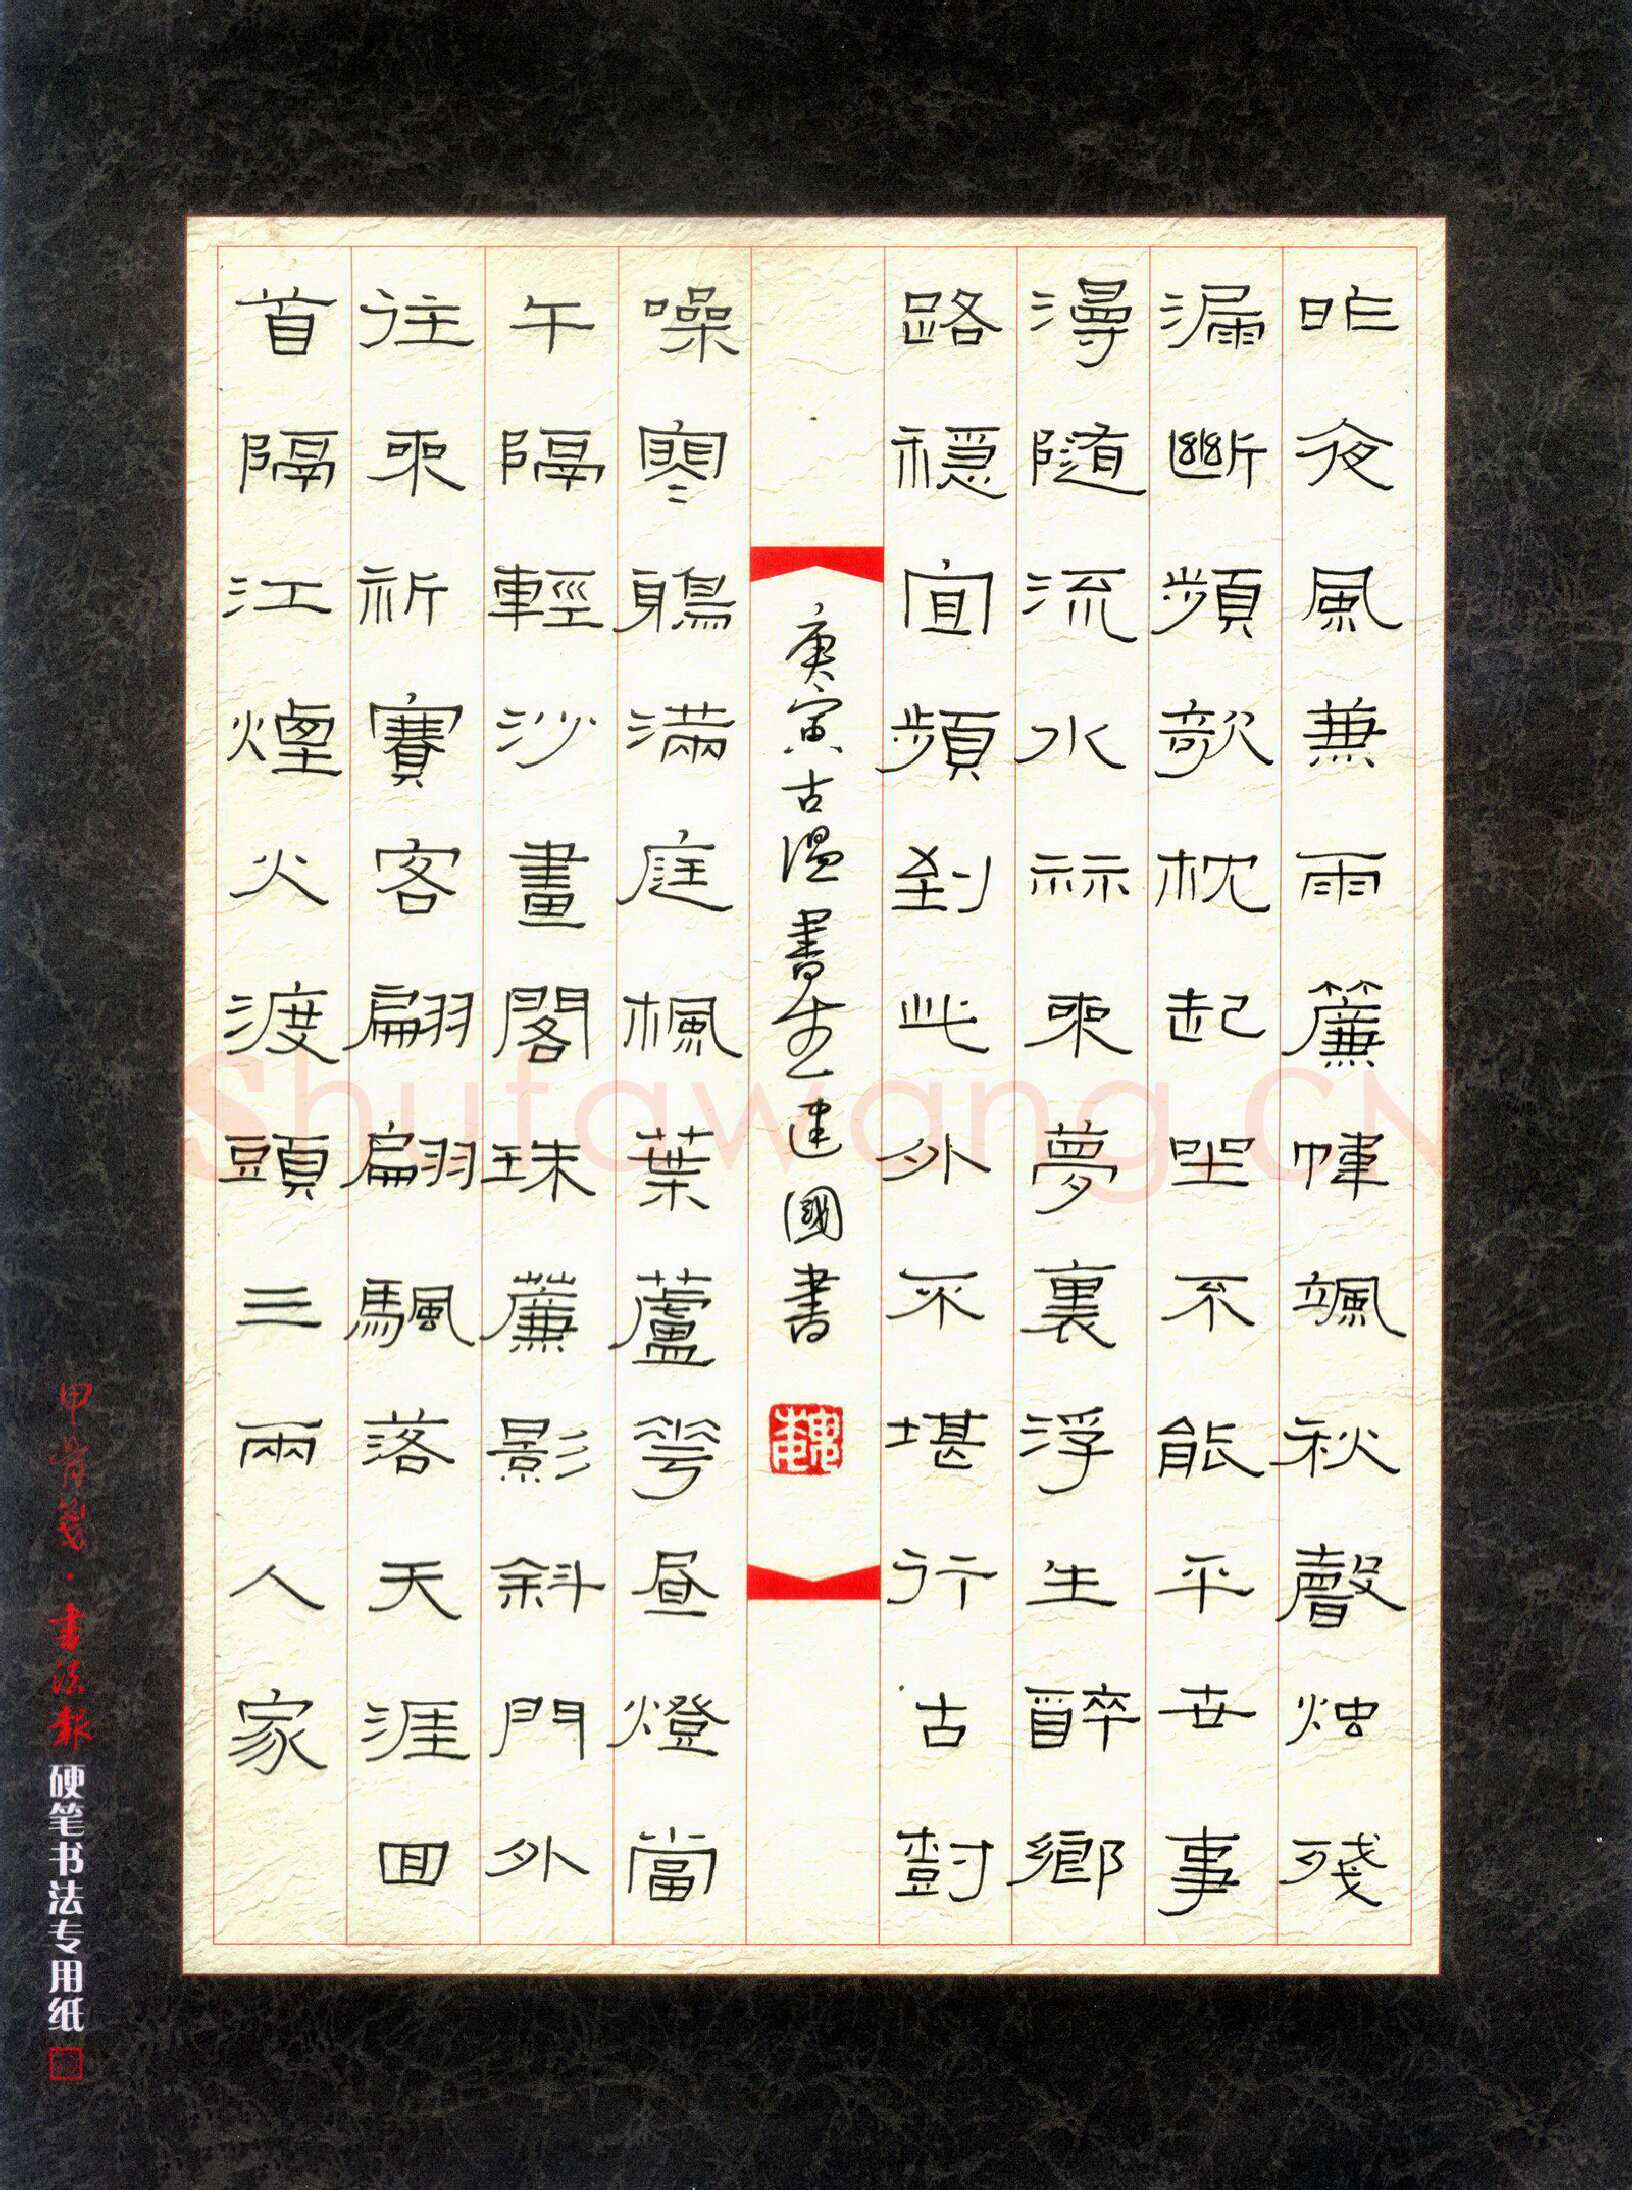 昨夜風兼雨簾幃颯秋聲烛殘
漏斷頻欹枕起坐不能平世事
漫隨流水祘來夢裏浮生醉鄉
路穩宜頻到此外不堪行古尌
庚寅古温書生建國書
魏
噪寒鵶滿庭楓葉蘆花昼燈當
午隔輕沙畫閣珠薕影斜門外
往來祈賽客翩翩颿落天涯囬
首隔江煙火渡頭三兩人家
甲骨箋·書法報硬笔书法专用纸
Shufawang.CN